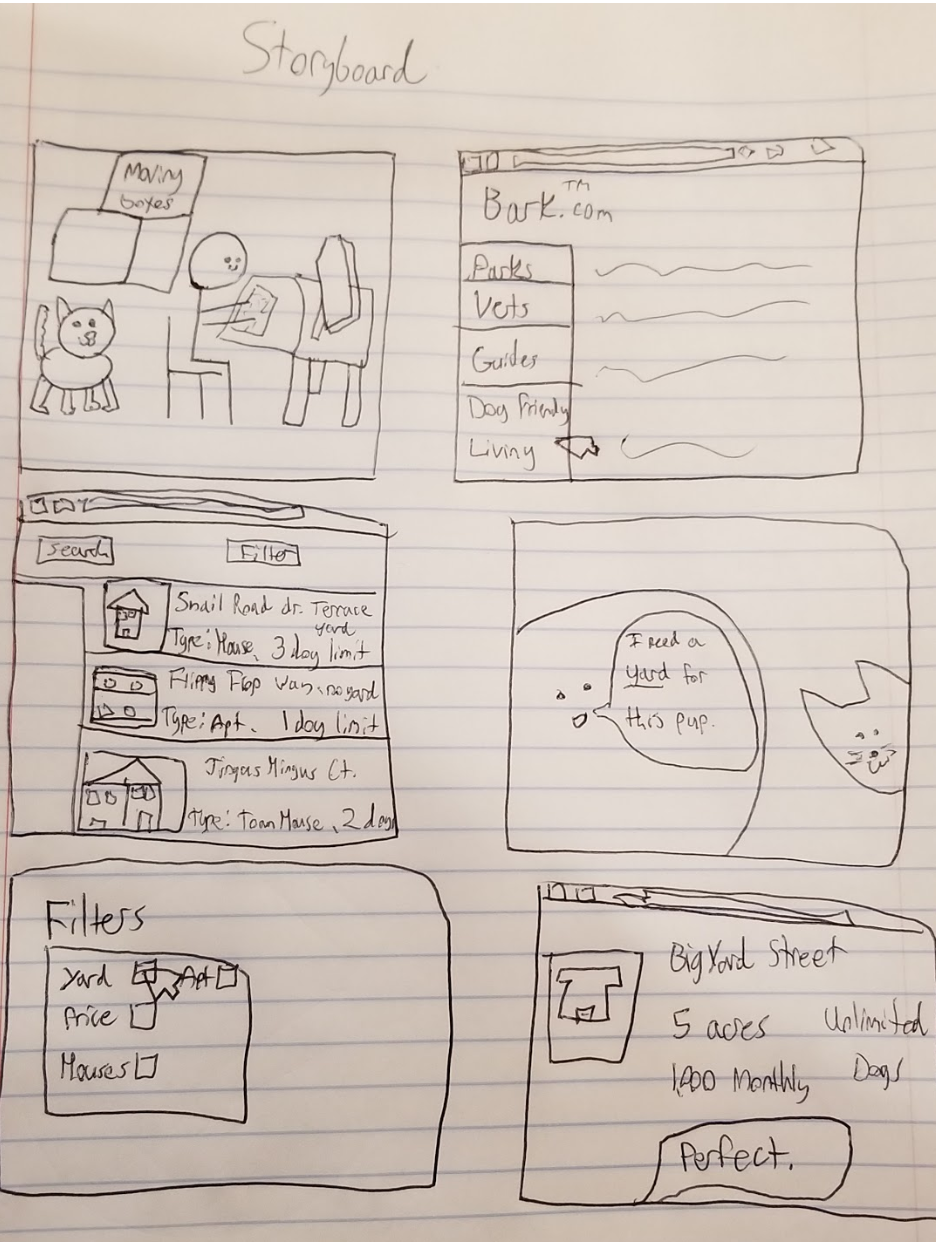 Storyboard
Moving
boxes
Bark.com
TM
Parks
Vets
Guides
Dog Friendly
Living
Search
Filter
Snail Road dr. Terrace
yard
Type: House, 3 dog limit
Flippy Flop Way, no yard
Type: Apt. 1 dog limit
Jingus Mingus Ct.
Type: Town House, 2 dog
I need a
yard for
this pup.
Filters
Yard Apt
Price
Houses
Big Yard Street
5 acres Unlimited
Monthly Dogs
Perfect.